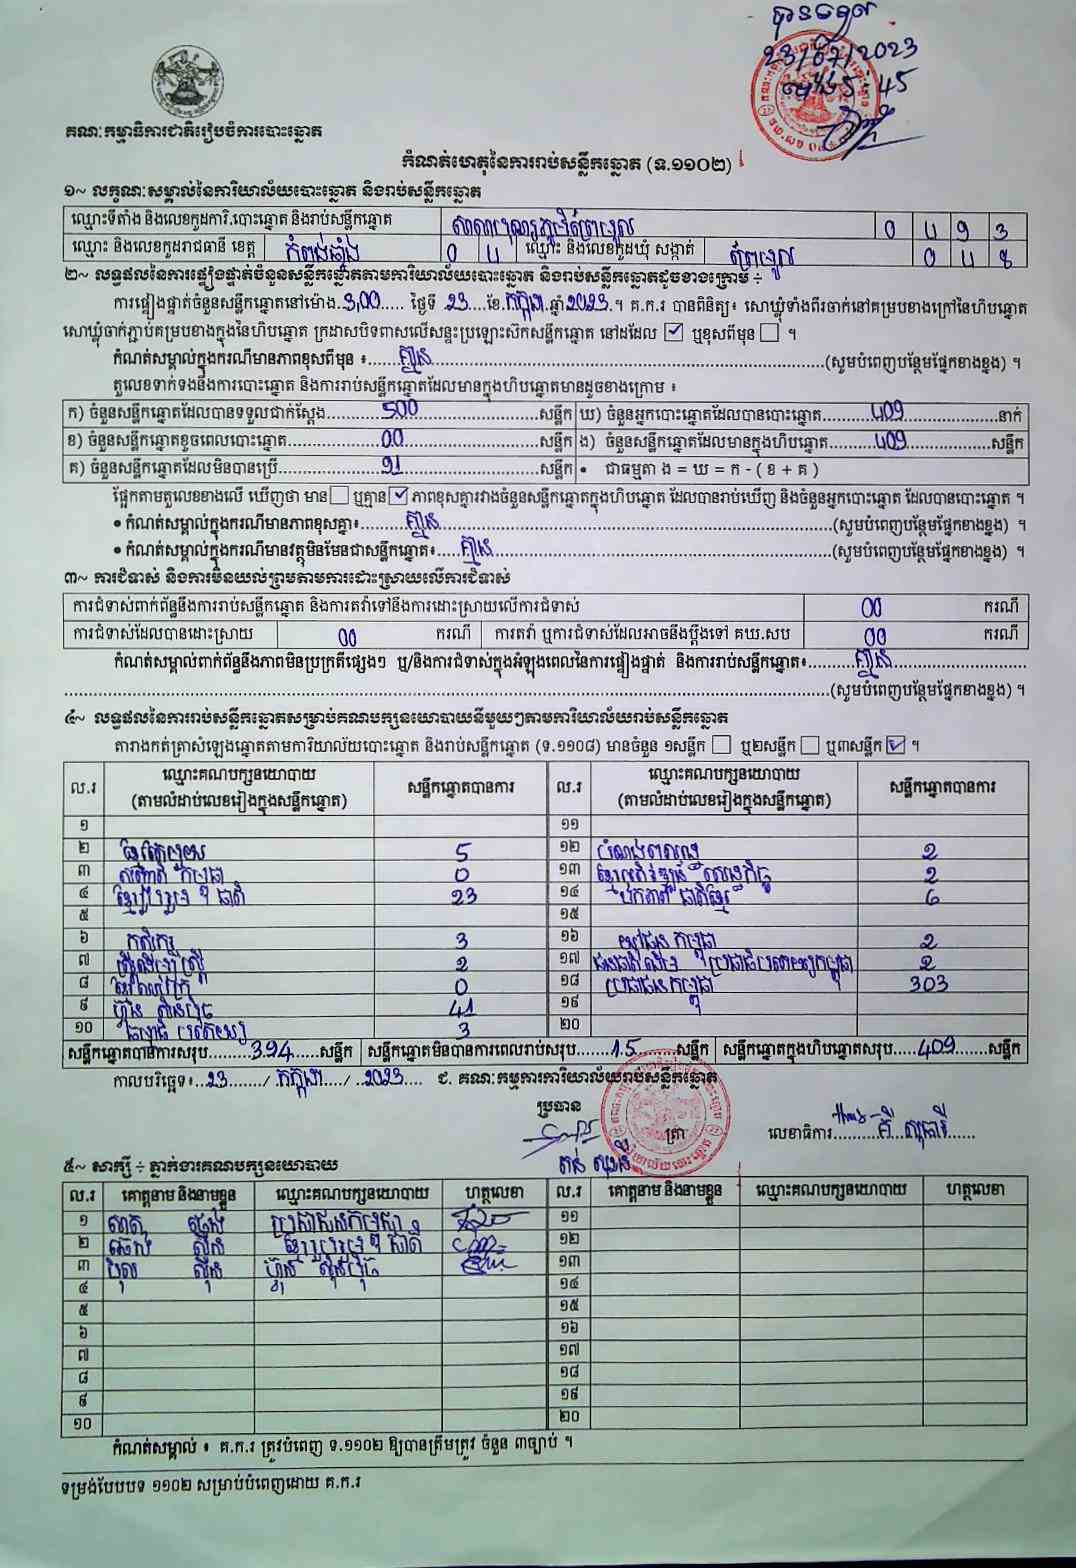 បានឃើញ
23/07/2023
ម៉ោង 5:45
គណៈកម្មាធិការជាតិរៀបចំការបោះឆ្នោត
កំណត់ហេតុនៃការរាប់សន្លឹកឆ្នោត (ទ.១១០២)
១~ លក្ខណៈសម្គាល់នៃការិយាល័យបោះឆ្នោត និងរាប់សន្លឹកឆ្នោត
ឈ្មោះទីតាំង និងលេខកូដការិ.បោះឆ្នោត និងរាប់សន្លឹកឆ្នោត 0 4 9 3
ឈ្មោះ និងលេខកូដរាជធានី ខេត្ត កំពង់ឆ្នាំង 0 4 ឈ្មោះ និងលេខកូដឃុំ សង្កាត់ 0 4 8
២~ លទ្ធផលនៃការផ្ទៀងផ្ទាត់ចំនួនសន្លឹកឆ្នោតតាមការិយាល័យបោះឆ្នោត និងរាប់សន្លឹកឆ្នោតដូចខាងក្រោម ÷
ការផ្ទៀងផ្ទាត់ចំនួនសន្លឹកឆ្នោតនៅម៉ោង.3,00..... ថ្ងៃទី 23....ខែ.កក្កដា.ឆ្នាំ2023.។ គ.ក.រ បានពិនិត្យ៖ សោឃ្លុំទាំងពីរចាក់នៅគម្របខាងក្រៅនៃហិបឆ្នោត
សោឃ្លុំចាក់ភ្ជាប់គម្របខាងក្នុងនៃហិបឆ្នោត ក្រដាសបិទពាសលើសន្ទះប្រឡោះស៊កសន្លឹកឆ្នោត នៅដដែល ☑ ឬខុសពីមុន ☐ ។
កំណត់សម្គាល់ក្នុងករណីមានភាពខុសពីមុន ៖......គ្មាន......(សូមបំពេញបន្ថែមផ្នែកខាងខ្នង) ។
តួលេខទាក់ទងនឹងការបោះឆ្នោត និងការរាប់សន្លឹកឆ្នោតដែលមានក្នុងហិបឆ្នោតមានដូចខាងក្រោម ៖
ក) ចំនួនសន្លឹកឆ្នោតដែលបានទទួលជាក់ស្តែង......500......សន្លឹក ឃ) ចំនួនអ្នកបោះឆ្នោតដែលបានបោះឆ្នោត......409......នាក់
ខ) ចំនួនសន្លឹកឆ្នោតខូចពេលបោះឆ្នោត......00......សន្លឹក ង) ចំនួនសន្លឹកឆ្នោតដែលមានក្នុងហិបឆ្នោត......409......សន្លឹក
គ) ចំនួនសន្លឹកឆ្នោតដែលមិនបានប្រើ......91......សន្លឹក • ជាធម្មតា ង = ឃ = ក - ( ខ + គ )
ផ្អែកតាមតួលេខខាងលើ ឃើញថា មាន ☐ ឬគ្មាន ☑ ភាពខុសគ្នារវាងចំនួនសន្លឹកឆ្នោតក្នុងហិបឆ្នោត ដែលបានរាប់ឃើញ និងចំនួនអ្នកបោះឆ្នោត ដែលបានបោះឆ្នោត ។
• កំណត់សម្គាល់ក្នុងករណីមានភាពខុសគ្នា៖......គ្មាន......(សូមបំពេញបន្ថែមផ្នែកខាងខ្នង) ។
• កំណត់សម្គាល់ក្នុងករណីមានវត្ថុមិនមែនជាសន្លឹកឆ្នោត៖......គ្មាន......(សូមបំពេញបន្ថែមផ្នែកខាងខ្នង) ។
៣~ ការជំទាស់ និងការមិនយល់ព្រមតាមការដោះស្រាយលើការជំទាស់
ការជំទាស់ពាក់ព័ន្ធនឹងការរាប់សន្លឹកឆ្នោត និងការតវ៉ាទៅនឹងការដោះស្រាយលើការជំទាស់ 00 ករណី
ការជំទាស់ដែលបានដោះស្រាយ 00 ករណី ការតវ៉ា ឬការជំទាស់ដែលអាចនឹងប្តឹងទៅ គឃ.សប 00 ករណី
កំណត់សម្គាល់ពាក់ព័ន្ធនឹងភាពមិនប្រក្រតីផ្សេងៗ ឬ/និងការជំទាស់ក្នុងអំឡុងពេលនៃការផ្ទៀងផ្ទាត់ និងការរាប់សន្លឹកឆ្នោត៖......គ្មាន......
......(សូមបំពេញបន្ថែមផ្នែកខាងខ្នង) ។
៤~ លទ្ធផលនៃការរាប់សន្លឹកឆ្នោតសម្រាប់គណបក្សនយោបាយនីមួយៗតាមការិយាល័យរាប់សន្លឹកឆ្នោត
តារាងកត់ត្រាសំឡេងឆ្នោតតាមការិយាល័យបោះឆ្នោត និងរាប់សន្លឹកឆ្នោត (ទ.១១០៨) មានចំនួន ១សន្លឹក ☐ ឬ២សន្លឹក ☐ ឬ៣សន្លឹក ☑ ។
ល.រ ឈ្មោះគណបក្សនយោបាយ (តាមលំដាប់លេខរៀងក្នុងសន្លឹកឆ្នោត) សន្លឹកឆ្នោតបានការ ល.រ ឈ្មោះគណបក្សនយោបាយ (តាមលំដាប់លេខរៀងក្នុងសន្លឹកឆ្នោត) សន្លឹកឆ្នោតបានការ
១ ១១
២ 5 ១២ 2
៣ សញ្ជាតិ កម្ពុជា 0 ១៣ 2
៤ ខ្មែររួបរួមជាតិ 23 ១៤ 6
៥ ១៥
៦ កសិករ 3 ១៦ យុវជន កម្ពុជា 2
៧ ស្ត្រីដើម្បីស្ត្រី 2 ១៧ 2
៨ 0 ១៨ ប្រជាជនកម្ពុជា 303
៩ ហ៊្វុនស៊ិនប៉ិច 41 ១៩
១០ ធម្មាធិបតេយ្យ 3 ២០
សន្លឹកឆ្នោតបានការសរុប.........394......សន្លឹក សន្លឹកឆ្នោតមិនបានការពេលរាប់សរុប.......15.........សន្លឹក សន្លឹកឆ្នោតក្នុងហិបឆ្នោតសរុប.....409.......សន្លឹក
កាលបរិច្ឆេទ៖..23......./ កក្កដា..../ ..2023.... ជ. គណៈកម្មការការិយាល័យរាប់សន្លឹកឆ្នោត
ប្រធាន
ត្រា លេខាធិការ
៥~ សាក្សី ÷ ភ្នាក់ងារគណបក្សនយោបាយ
ល.រ គោត្តនាម និងនាមខ្លួន ឈ្មោះគណបក្សនយោបាយ ហត្ថលេខា ល.រ គោត្តនាម និងនាមខ្លួន ឈ្មោះគណបក្សនយោបាយ ហត្ថលេខា
១ ប្រជាជនកម្ពុជា ១១
២ ខ្មែររួបរួមជាតិ ១២
៣ ហ៊្វុនស៊ិនប៉ិច ១៣
៤ ១៤
៥ ១៥
៦ ១៦
៧ ១៧
៨ ១៨
៩ ១៩
១០ ២០
កំណត់សម្គាល់ ៖ គ.ក.រ ត្រូវបំពេញ ទ.១១០២ ឱ្យបានត្រឹមត្រូវ ចំនួន ៣ច្បាប់ ។
ទម្រង់បែបបទ ១១០២ សម្រាប់បំពេញដោយ គ.ក.រ